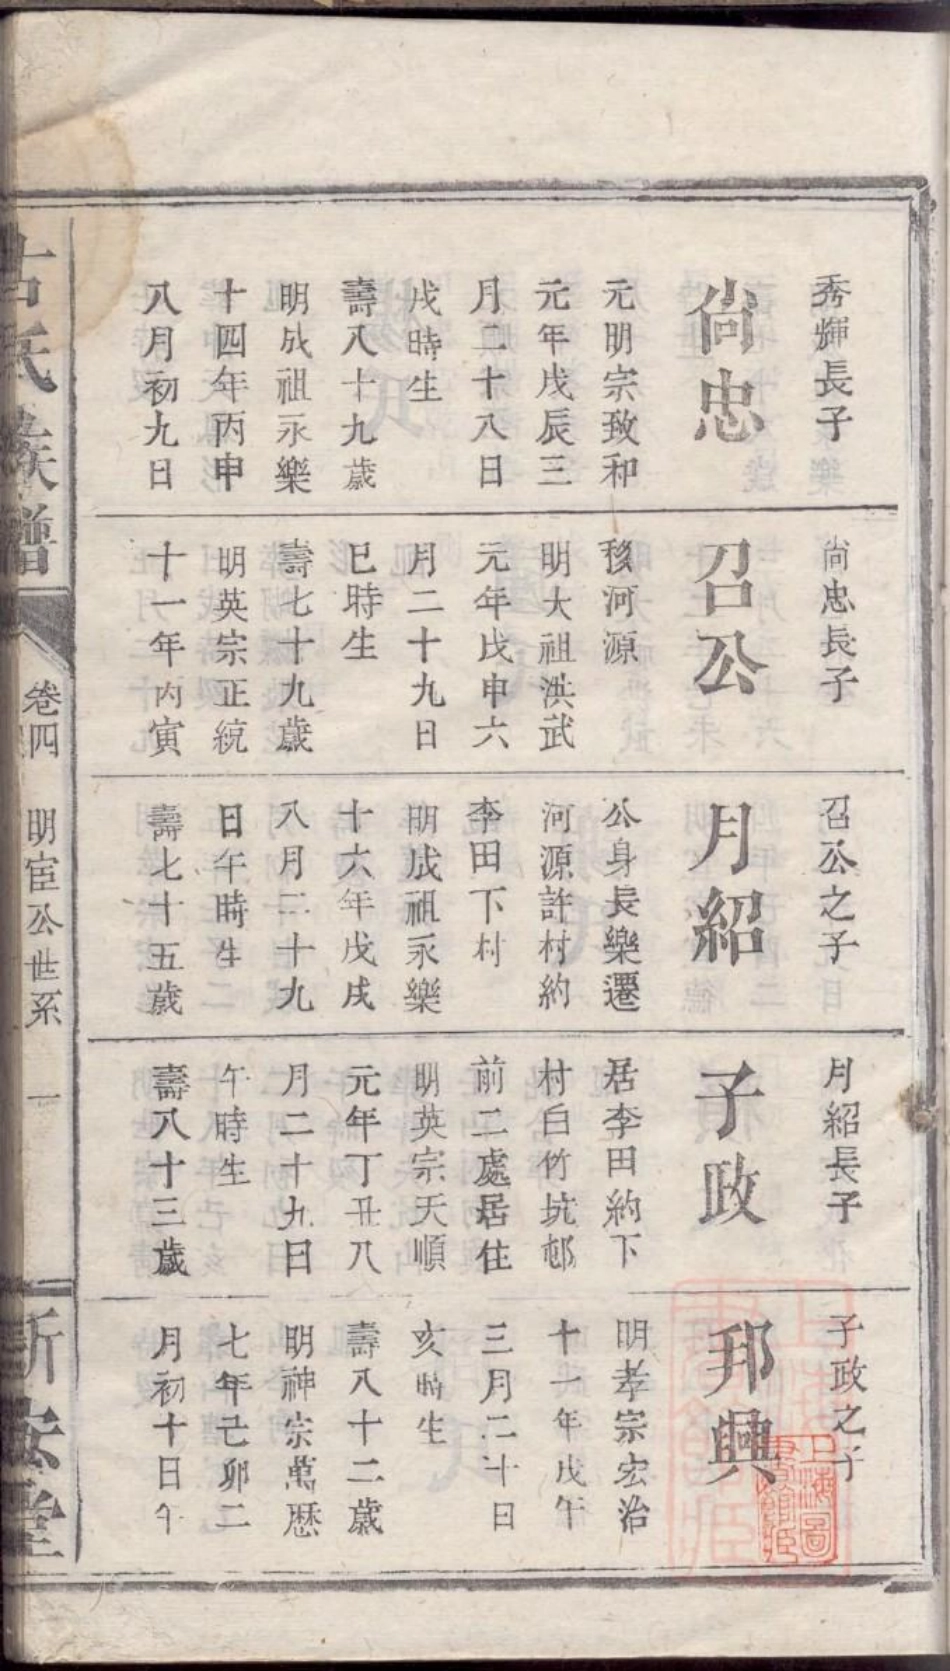 秀輝長子
尙忠
元明宗致和
元年戊辰三
月二十八日
戌時生
壽八十九歲
明成祖永樂
十四年丙申
八月初九日
尙忠長子
召公
移河源
明大祖洪武
元年戊申六
月二十九日
巳時生
壽七十九歲
明英宗正統
十一年丙寅
召公之子
月紹
公身長樂遷
河源許村約
李田下村
明成祖永樂
十六年戊戌
八月二十九
日午時生
壽七十五歲
月紹長子
子政
居李田約下
村白竹坑邨
前二處居住
明英宗天順
元年丁丑八
月二十九日
午時生
壽八十三歲
子政之子
邦興
明孝宗宏治
十一年戊午
三月二十日
亥時生
壽八十二歲
明神宗萬歷
七年己卯二
月初十日午
古氏族譜
卷四
明宦公世系
一
新安堂
上海圖書館藏